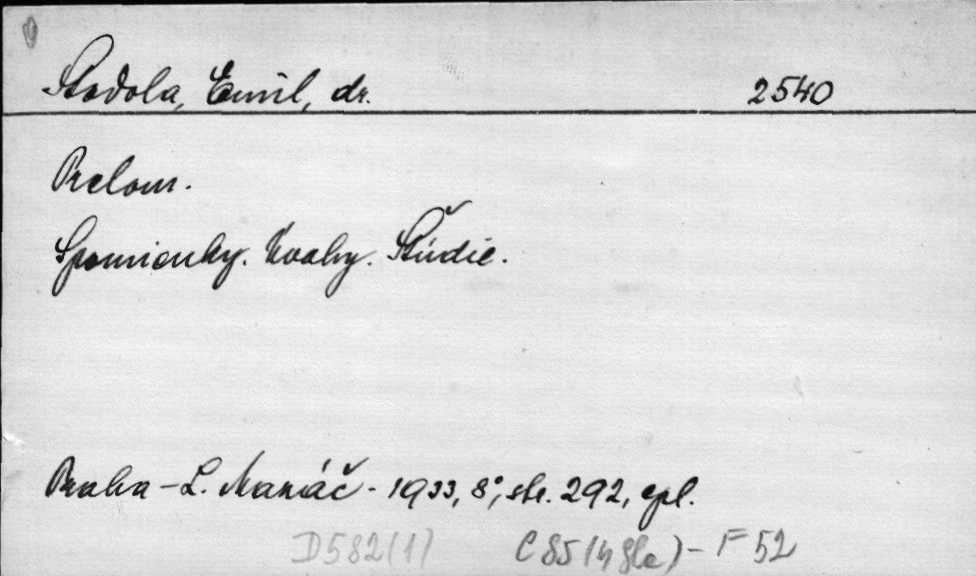 Stodola, Emil, dr. 2540
Prelom.
Spomienky. Úvahy. Štúdie.
Praha - L. Mazáč - 1933, 8°, str. 292, cpl.
D 582 (1) C 85 (4 Sla) - F 52